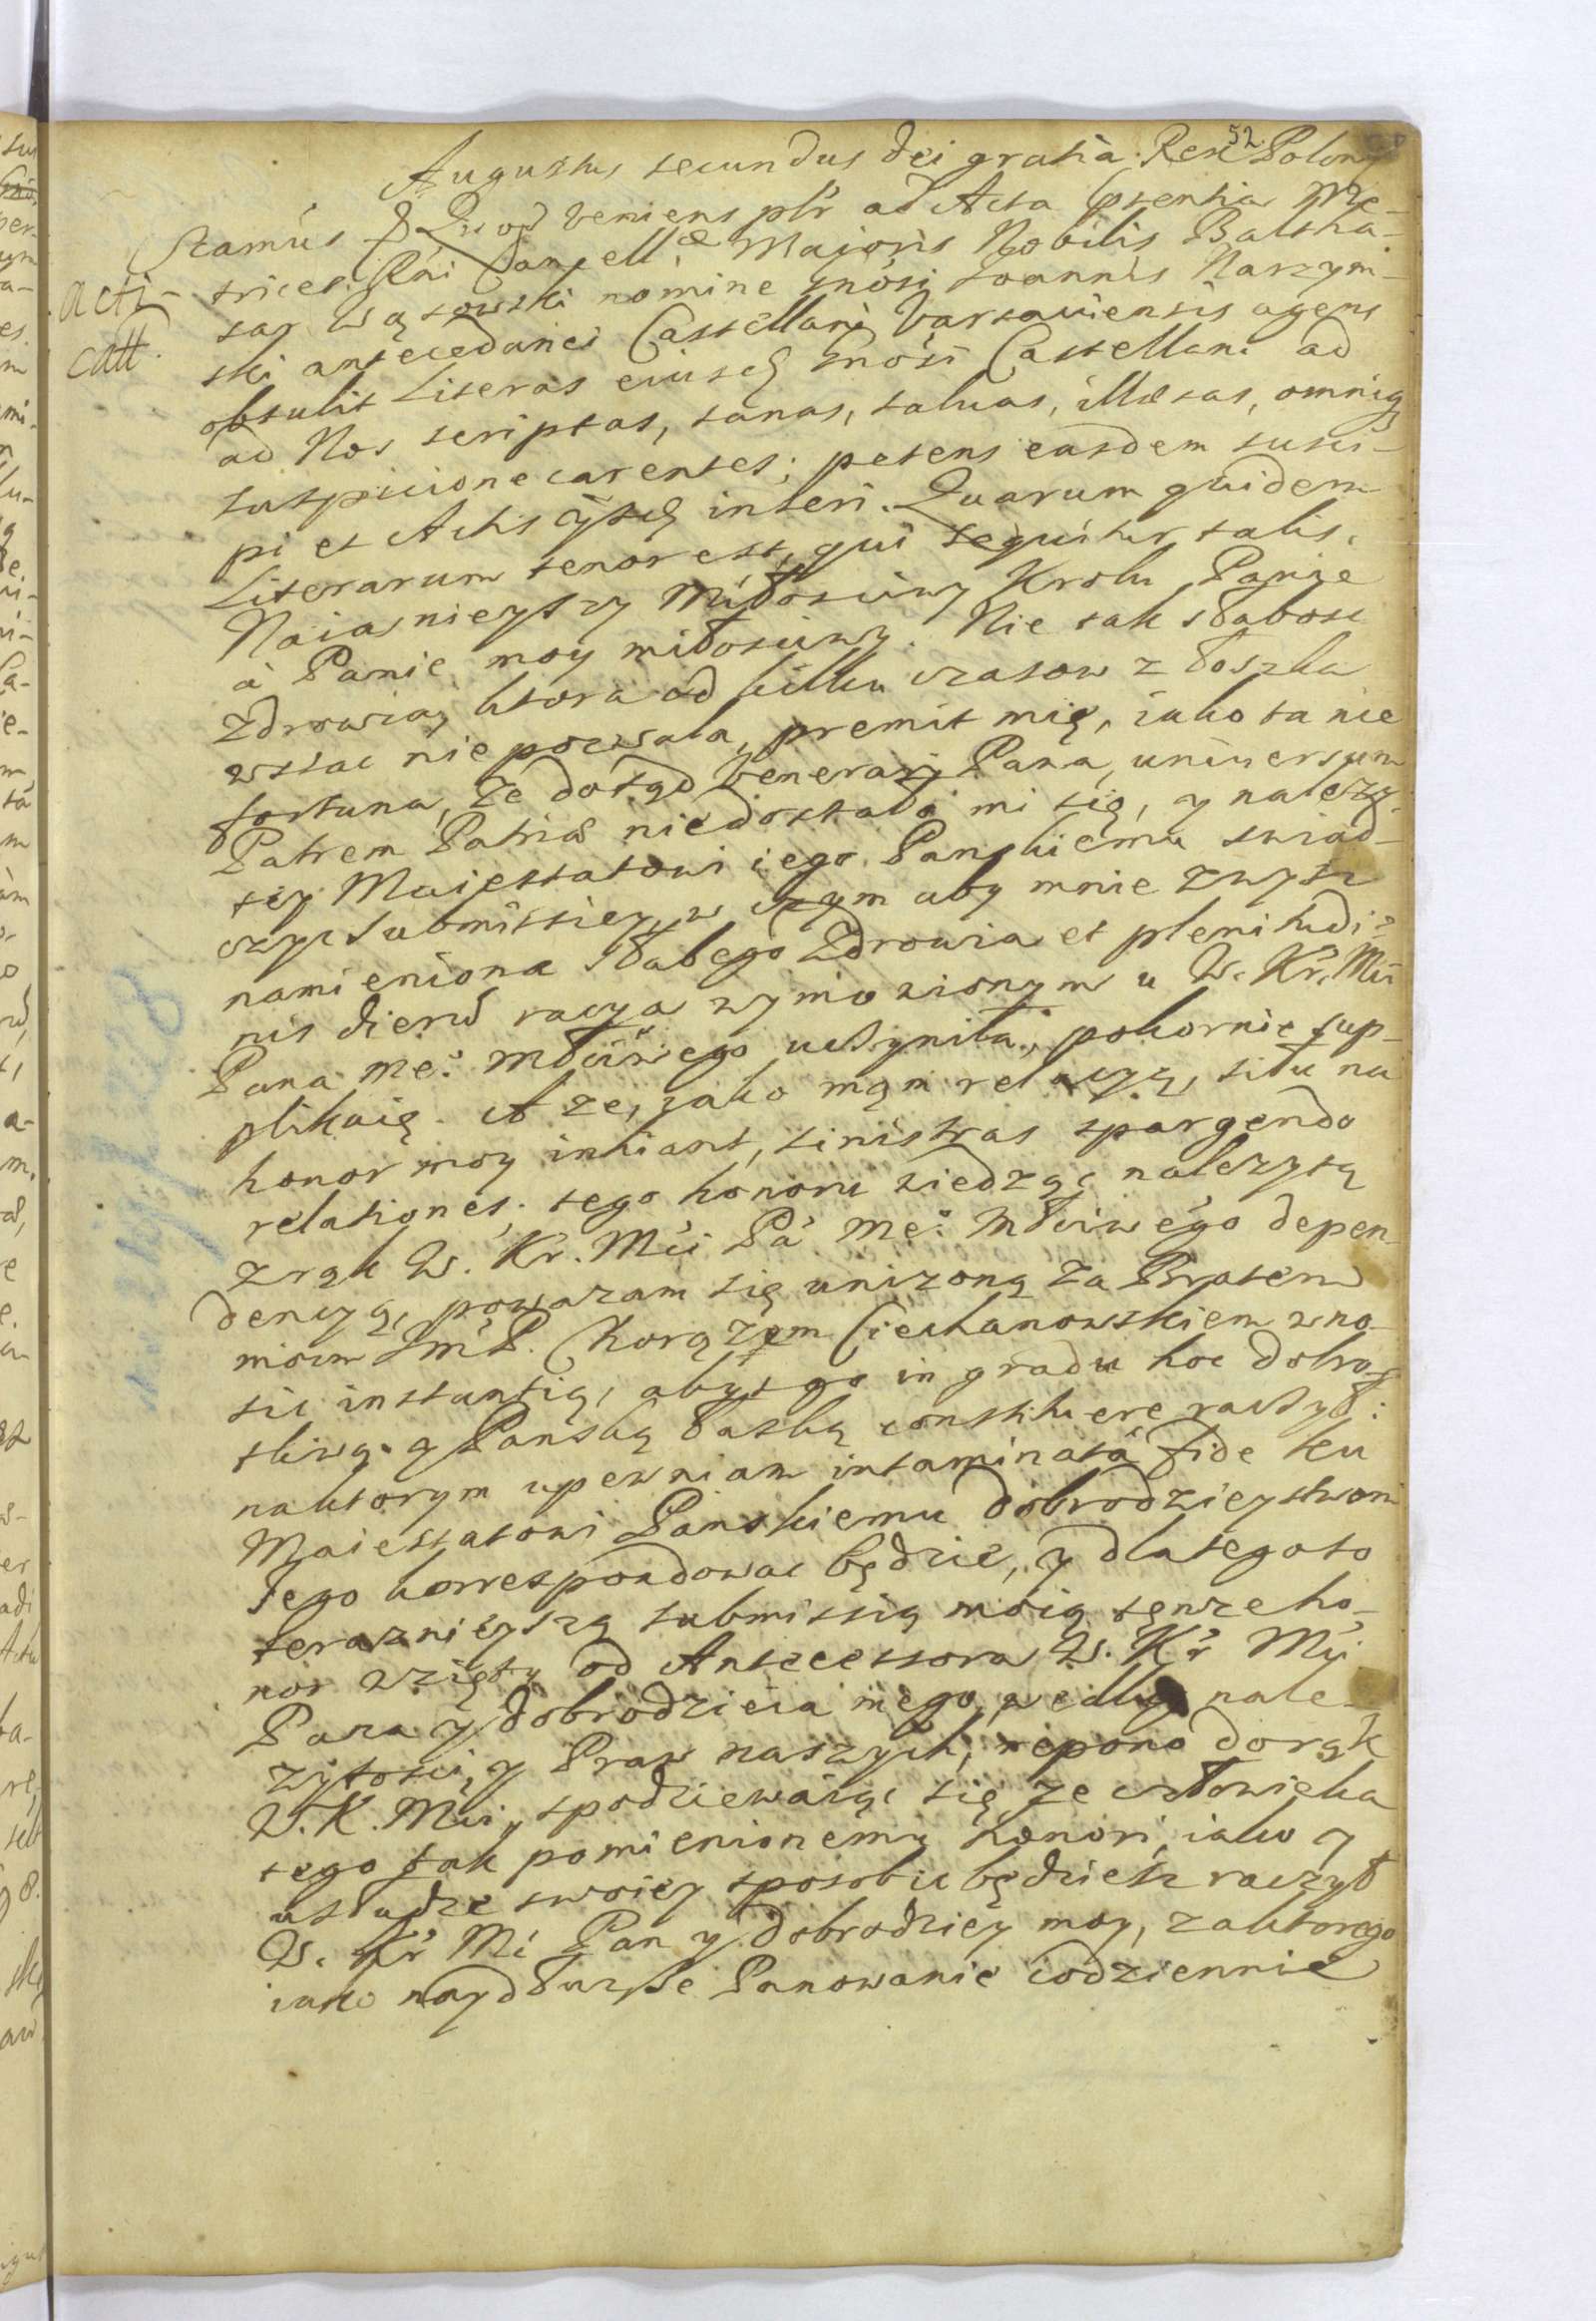 52
Augustus secundus Dei gratia Rex Polony
Quod veniens plr ad Acta psentia Me-
trices Rni Cancellæ Majoris Nobilis Baltha-
sar Wąsowski nomine gnosi Joannis Naszym-
ski antecedanei Castellani Varsaviensis agens
obtulit Literas eiusd gnosi Castellani ad
ad Nos scriptas, sanas, saluas, illæsas, omniq
suspicione carentes; petens easdem susci-
pi et Actis inseri. Quarum quidem
Literarum tenor est, qui sequitur talis.
Naiasnieyszy Miłosciwy Krolu Panie
à Panie moy miłosciwy. Nie tak słabosc
zdrowia, ktora od kilku czasow z łoszka
wstac nie pozwala, premit mię, iako ta nie
fortuna, że dotąd Pana, universum
Patrem Patriæ niedostało mi się, y należy-
tey Maiestatowi iego Panskiemu swiad-
czyc submissiey, w czym aby mnie zwysz
namieniona słabego zdrowia et plenitudi-
nis dierū racya wymowionym u W. Kr. Mci
Pana me: młciwego uczyniła, pokornie sup-
plikuię. A że, iako mąm relacyą, situ na
honor moy inhiant, sinistras spargendo
relationes; tego honoru wiedząc należytą
z rąk W. Kr. Mci Pa me: młciwego depen
dencyą, poważam się uniżoną za Bratem
moim JmP. Chorążym Ciechanowskiem wno-
sic instantią, abys go in gradu hoc dobro-
tliwą y Panską łaską constituere raczył:
naktorym upewniam intaminatâ fide ku
Maiestatowi Panskiemu dobrodzieystwom
Jego korrespondowac będzie, y dlategoto
teraznieyszą submissią moią tenże ho-
nor wzięty od Antecessora W. Kr Mci
Pana y dobrodzieia mego, według nale-
żytosci y Praw naszych, repono dorąk
W. K. Mci, spodziewaiąc się że człowieka
tego tak pomienionemu honori, iako y
usłudze swoiey sposobic będziesz raczył
W. Kr Mć Pan y dobrodziey moy, zaktorego
iako naydłuzsze Panowanie codziennie
acti-
catt.